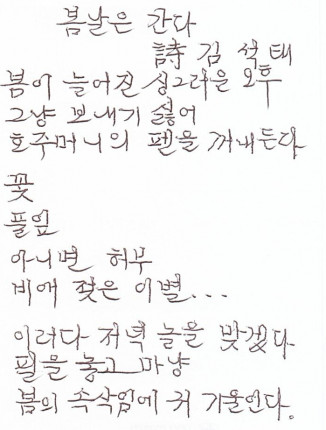 봄날은 간다
詩 김 석 태
봄이 늘어진 싱그러운 오후
그냥 보내기 싫어
호주머니의 펜을 꺼내든다
꽃
풀잎
아니면 허무
비애 젖은 이별...
이러다 저녁 놀을 맞겠다
펜을 놓고 마냥
봄의 속삭임에 귀 기울인다.